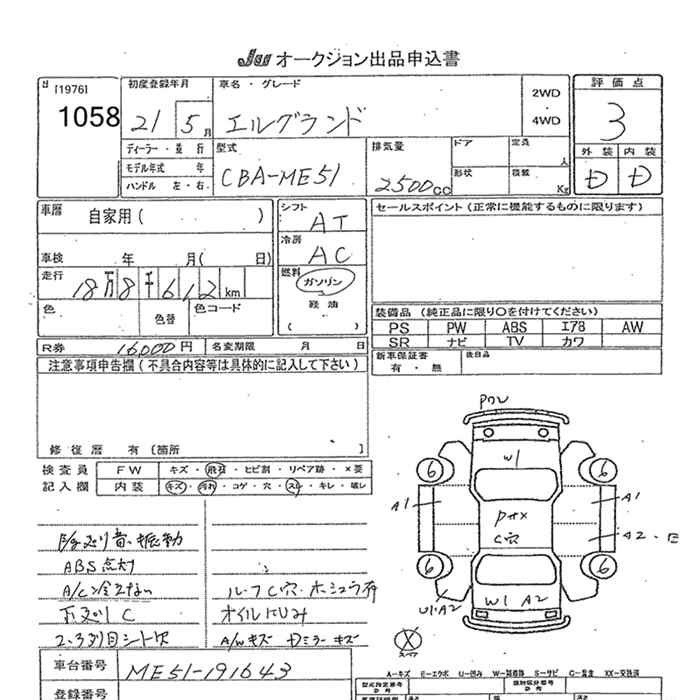 JU オークション出品申込書
[1976]
1058
初度登録年月
21 5月
車名・グレード
エルグランド
2WD
・
4WD
評価点
3
外装 内装
D D
ディーラー・並行
モデル年式 年
ハンドル 左・右
型式
CBA-ME51
排気量
2500cc
ドア
定員
人
形状
積載
Kg
車歴
自家用( )
シフト
AT
冷房
AC
車検 年 月( 日)
走行
18万8千612km
燃料
ガソリン
軽油
( )
色
色替
色コード
R券 16,000円 名変期限 月 日
セールスポイント(正常に機能するものに限ります)
装備品 (純正品に限り○を付けてください)
PS PW ABS エアB AW
SR ナビ TV カワ
新車保証書
有・無
後日品
注意事項申告欄(不具合内容等は具体的に記入して下さい)
修復歴 有[箇所 ]
検査員
記入欄
FW キズ・飛石・ヒビ割・リペア跡・×要
内装 キズ・汚れ・コゲ・穴・スレ・キレ・破レ
ABS点灯
A/C冷えない
2・3列目シート欠
ルーフC穴・ホシュウ有
オイルにじみ
A/Wキズ Dミラーキズ
車台番号 ME51-191643
登録番号
W1
C穴
W1 A2
A1
A1
A2
U1・A2
6
6
6
6
スペア
A－キズ E－エクボ U－凹み W－補修跡 S－サビ C－腐食 XX－交換済
型式指定番号
類別区分番号